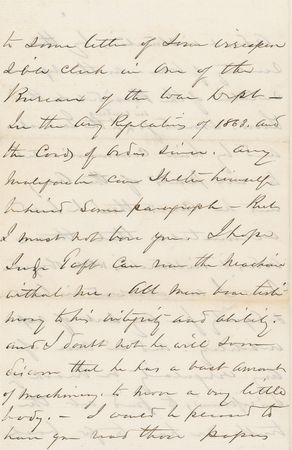 to some letter of some irrespon
sible clerk in one of the
Bureaus of the War Dept –
In the Army Regulations of 1863. and
the Cords of orders since, any
malefactor can Shelter himself
behind some paragraph – But
I must not bore you. I hope
Judge Taft can run the Machine
without me. All men bear testi
mony to his integrity and ability.
and I doubt not he will soon
discern that he has a vast amount
of machinery, to move a very little
body. – I would be pleased to
have you read those papers